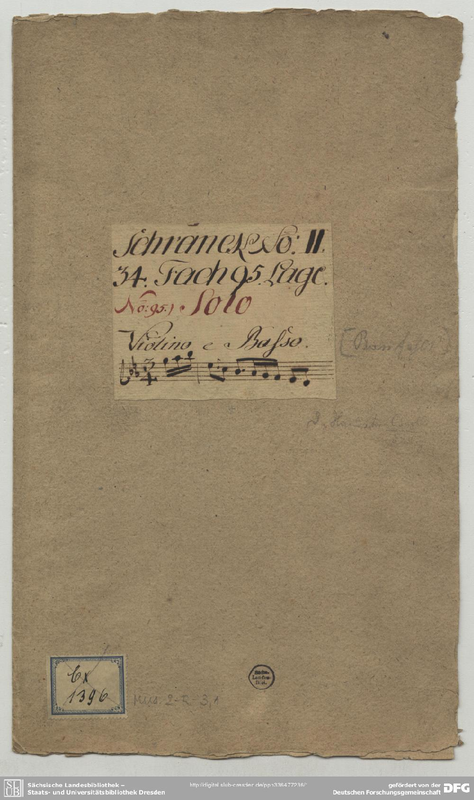 Schranck No: II.
34. Fach 95. Lage.
No: 95.) Solo
Violino e Basso.
Cx
1396
Mus. 2-R-3,1
Sächsische Landesbibliothek –
Staats- und Universitätsbibliothek Dresden
gefördert von der
Deutschen Forschungsgemeinschaft
DFG